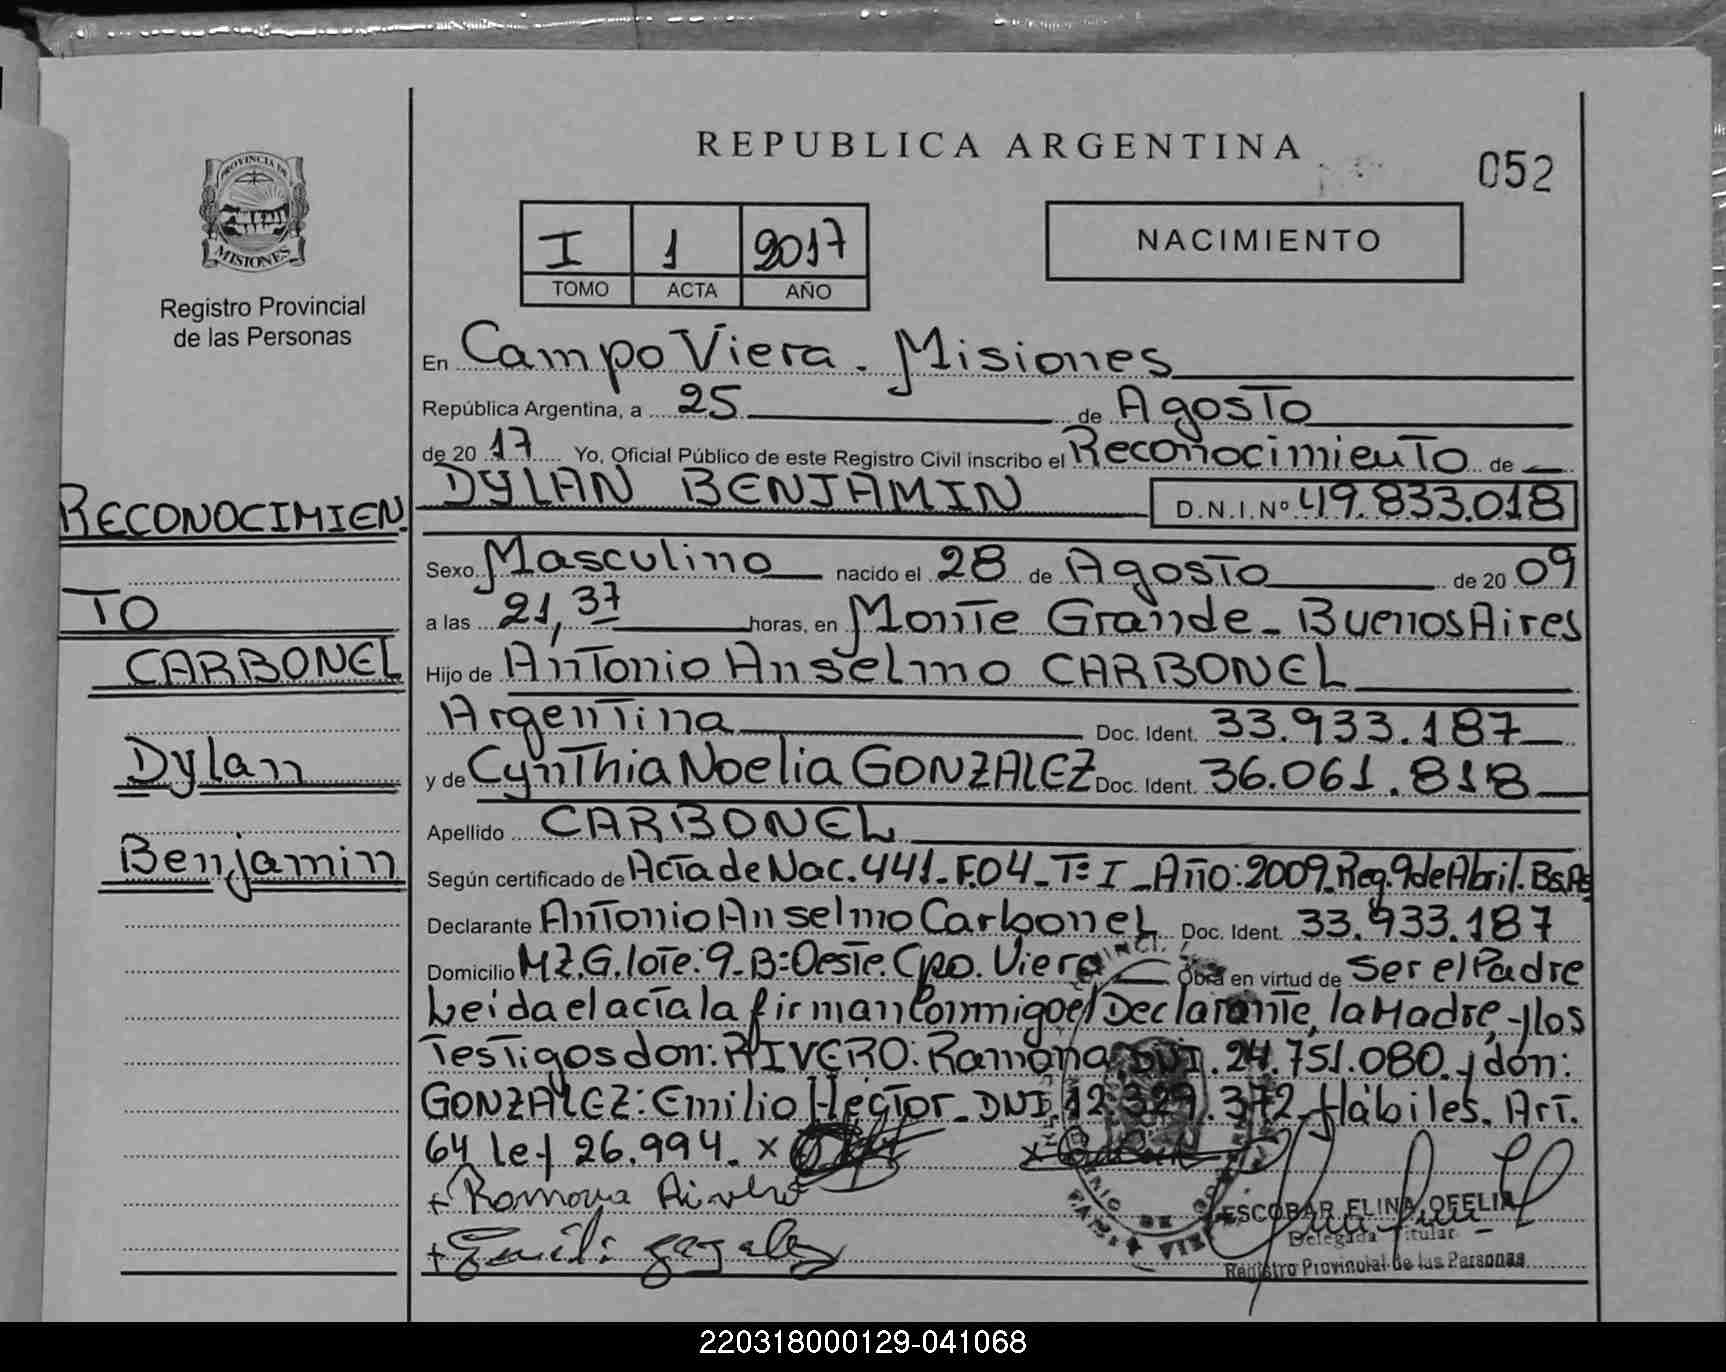 REPUBLICA ARGENTINA
052
PROVINCIA DE
MISIONES
Registro Provincial
de las Personas
I 1 2017
TOMO ACTA AÑO
NACIMIENTO
En Campo Viera. Misiones
República Argentina, a 25 de Agosto
de 2017 Yo, Oficial Público de este Registro Civil inscribo el Reconocimiento de
DYLAN BENJAMIN D.N.I.Nº 49.833.018
RECONOCIMIEN
TO
CARBONEL
Dylan
Benjamin
Sexo Masculino nacido el 28 de Agosto de 2009
a las 21,37 horas, en Monte Grande - Buenos Aires
Hijo de Antonio Anselmo CARBONEL
Argentina Doc. Ident. 33.933.187
y de Cynthia Noelia GONZALEZ Doc. Ident. 36.061.818
Apellido CARBONEL
Según certificado de Acta de Nac. 441- F.04- Tº I - Año: 2009. Reg. 9 de Abril. Bs As
Declarante Antonio Anselmo Carbonel Doc. Ident. 33.933.187
Domicilio MZ.G. lote: 9- B: Oeste. Cpo. Viera Obra en virtud de Ser el Padre
Leida el acta la firman Conmigo el Declarante, la Madre, y los
Testigos don: RIVERO: Ramona, DNI. 24.751.080. y don:
GONZALEZ: Emilio Hector - DNI. 12.329.372 - Hábiles. Art.
64 ley 26.994. x
x
+ Ramona Rivero
ESCOBAR ELINA OFELIA
Delegada Titular
Registro Provincial de las Personas
+ Emili gozalez
220318000129-041068